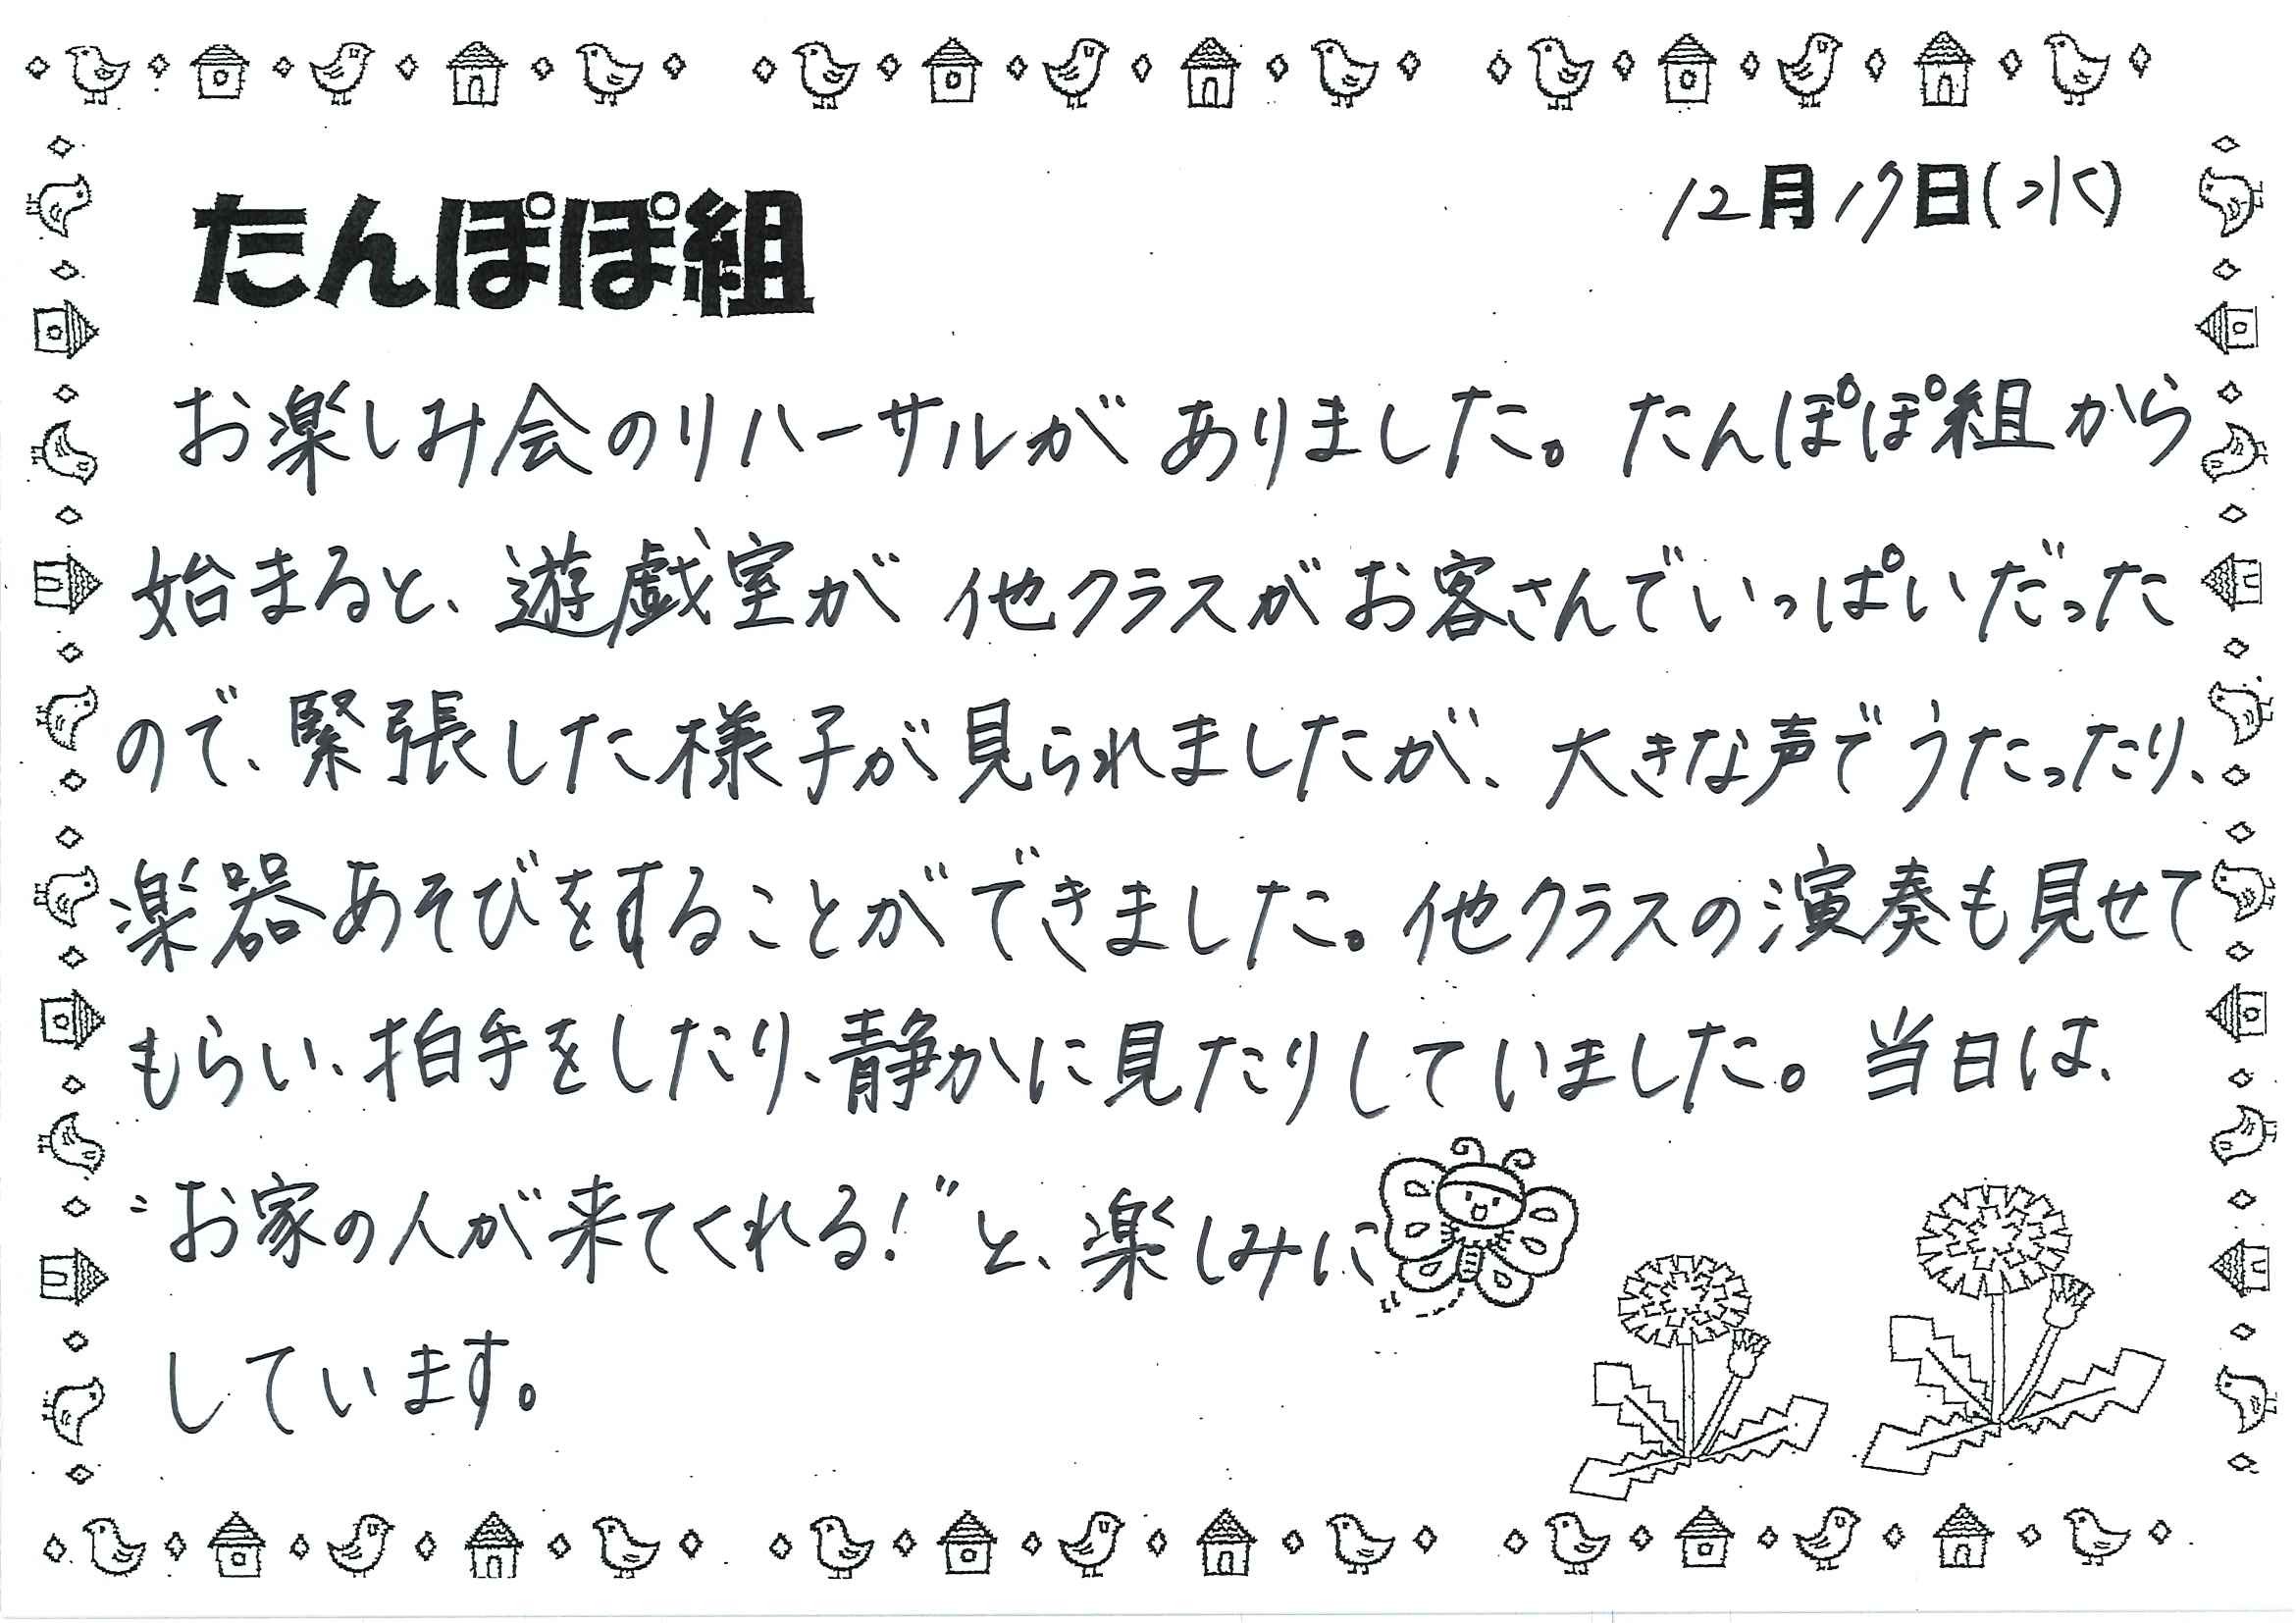 たんぽぽ組
12月17日(水)
お楽しみ会のリハーサルが ありました。たんぽぽ組から
始まると、遊戯室が 他クラスがお客さんでいっぱいだった
ので、緊張した様子が見られましたが、大きな声でうたったり、
楽器あそびをすることができました。他クラスの演奏も見せて
もらい、拍手をしたり、静かに見たりしていました。当日は、
"お家の人が来てくれる!"と、楽しみに
しています。